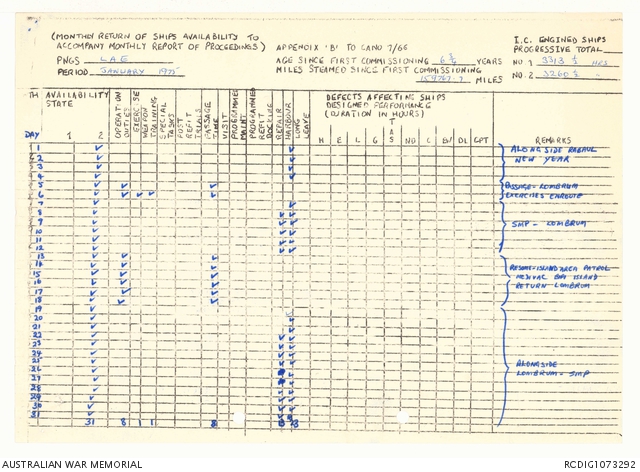 (MONTHLY RETURN OF SHIPS AVAILABILITY TO
ACCOMPANY MONTHLY REPORT OF PROCEEDINGS)
APPENDIX 'B' TO CANO 7/66
I.C. ENGINED SHIPS
PROGRESSIVE TOTAL
PNGS LAE
AGE SINCE FIRST COMMISSIONING 6 YEARS
NO. 1 3313 ½ HRS
PERIOD JANUARY 1975
MILES STEAMED SINCE FIRST COMMISSIONING MILES
NO. 2 3260 ½
AVAILABILITY
STATE
DAY 1 2
OPERATION DUTIES
EXERCISE
WEAPON TRAINING
SPECIAL TASKS
POST REFIT TRIALS
PASSAGE TIME
VISIT
PROGRAMMED MAINT
PROGRAMMED REFIT
DOCKING
REPAIR
HARBOUR
LONG LEAVE
DEFECTS AFFECTING SHIPS
DESIGNED PERFORMANCE
(DURATION IN HOURS)
H E L G TAS ND C DL CPT
REMARKS
1
2
3
4
5
6
7
8
9
10
11
12
13
14
15
16
17
18
19
20
21
22
23
24
25
26
27
28
29
30
31
ALONGSIDE RABAUL
NEW YEAR
PASSAGE - LOMBRUM
EXERCISES ENROUTE
SMP - LOMBRUM
ISLAND AREA PATROL
ISLAND
RETURN LOMBRUM
ALONGSIDE
LOMBRUM - SMP
31 8 1 1 8
AUSTRALIAN WAR MEMORIAL
RCDIG1073292